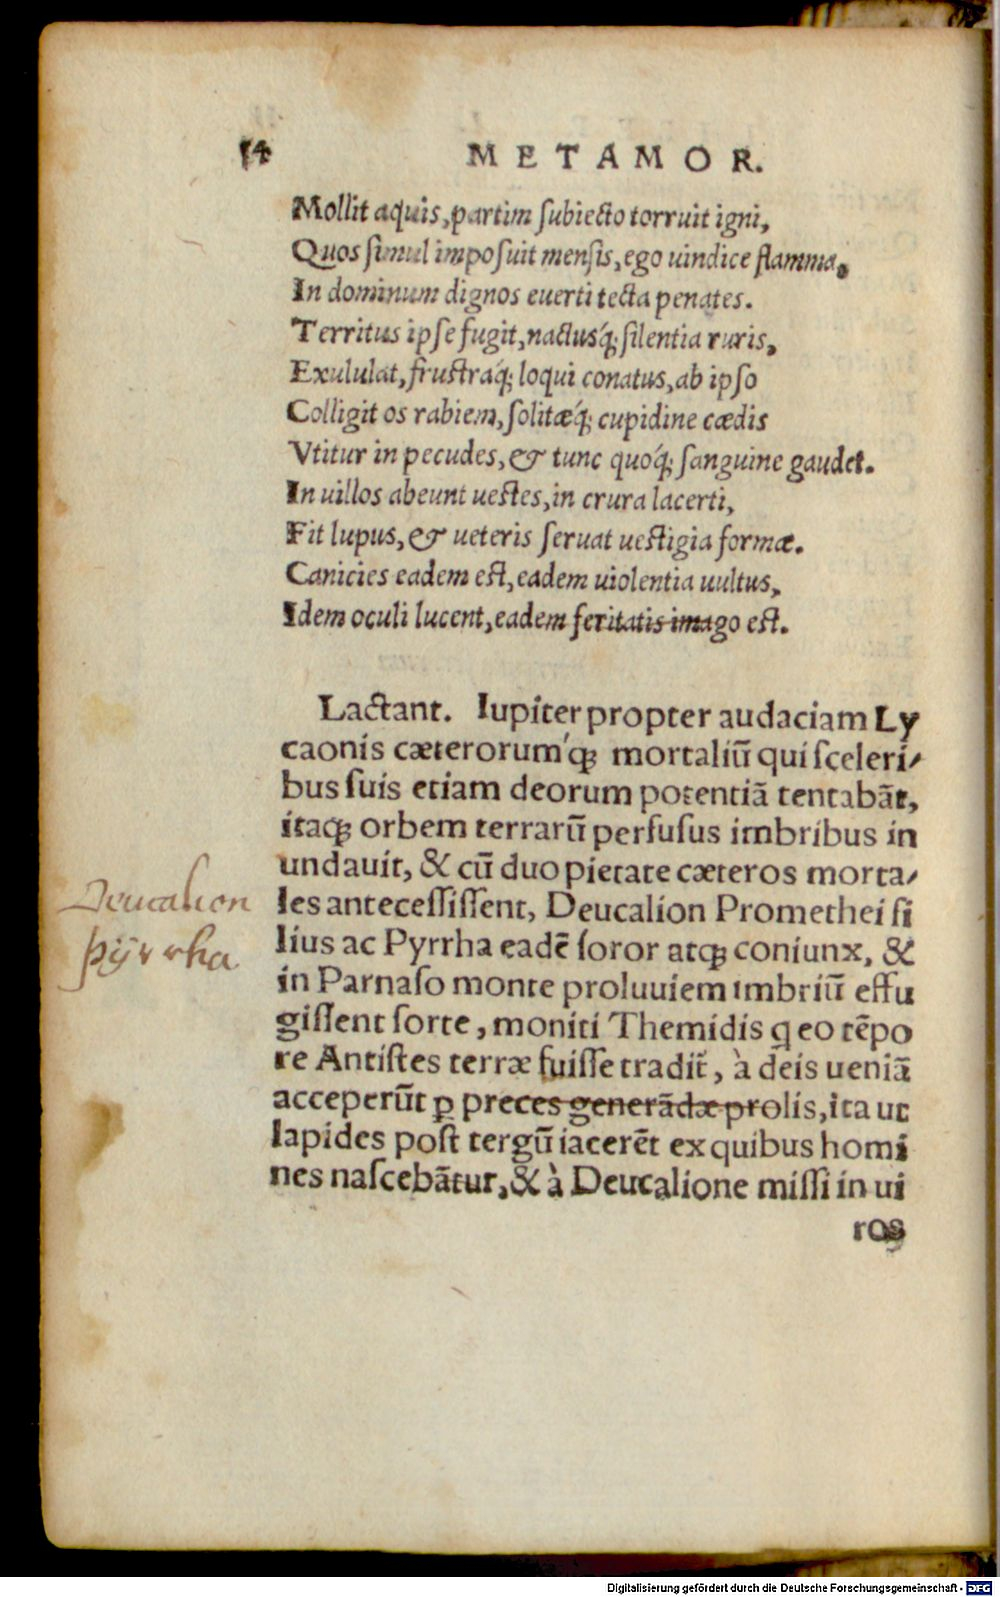 14 METAMOR.
Mollit aquis, partim ſubiecto torruit igni,
Quos ſimul impoſuit menſis, ego uindice flamma,
In dominum dignos euerti tecta penates.
Territus ipſe fugit, nactusq́; ſilentia ruris,
Exululat, fruſtraq́; loqui conatus, ab ipſo
Colligit os rabiem, ſolitæq́; cupidine cædis
Vtitur in pecudes, & tunc quoq́; ſanguine gaudet.
In uillos abeunt ueſtes, in crura lacerti,
Fit lupus, & ueteris ſeruat ueſtigia formæ.
Canicies eadem eſt, eadem uiolentia uultus,
Idem oculi lucent, eadem feritatis imago eſt.
Lactant. Iupiter propter audaciam Ly
caonis cæterorum'q; mortaliũ qui ſceleri⸗
bus ſuis etiam deorum potentiã tentabãt,
itaq; orbem terrarũ perfuſus imbribus in
undauit, & cũ duo pietate cæteros morta⸗
les anteceſſiſſent, Deucalion Promethei fi
lius ac Pyrrha eadẽ ſoror atq; coniunx, &
in Parnaſo monte proluuiem imbriũ effu
giſſent forte, moniti Themidis q eo tẽpo
re Antiſtes terræ fuiſſe tradit̃, à deis ueniã
acceperũt ꝑ preces generãdæ prolis, ita ut
lapides poſt tergũ iacerẽt ex quibus homi
nes naſcebãtur, & à Deucalione miſſi in ui
ros
Deucalion
Pÿrrha
Digitalisierung gefördert durch die Deutsche Forschungsgemeinschaft - DFG